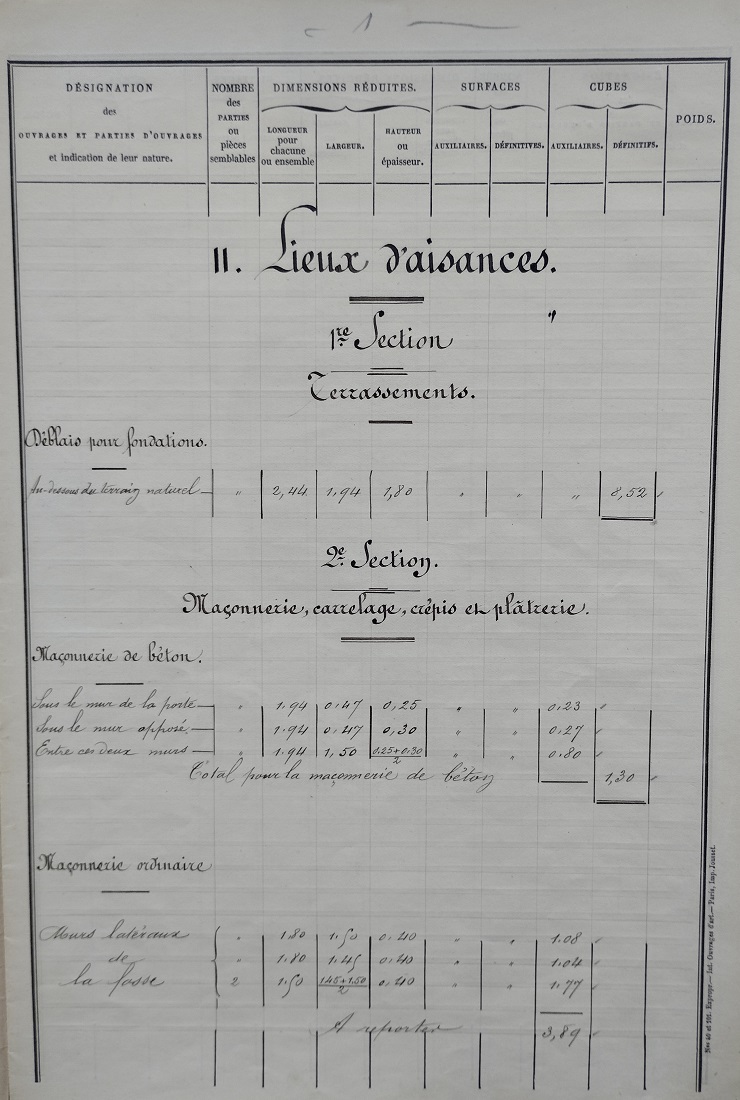 - 1 -
DÉSIGNATION
des
OUVRAGES ET PARTIES D'OUVRAGES
et indication de leur nature.
NOMBRE
des
PARTIES
ou
pièces
semblables
DIMENSIONS RÉDUITES.
LONGUEUR
pour
chacune
ou ensemble
LARGEUR.
HAUTEUR
ou
épaisseur.
SURFACES
AUXILIAIRES.
DÉFINITIVES.
CUBES
AUXILIAIRES.
DÉFINITIFS.
POIDS.
II. Lieux d'aisances.
1re Section "
Terrassements.
Déblais pour fondations.
Au-dessous du terrain naturel — " 2,44 1.94 1,80 " " " 8,52
2e Section.
Maçonnerie, carrelage, crépis et plâtrerie.
Maçonnerie de béton.
Sous le mur de la porte — " 1.94 0.47 0,25 " " 0.23 "
Sous le mur opposé. — " 1.94 0.47 0,30 " " 0.27 "
Entre ces deux murs — " 1.94 1,50 0.25+0.30/2 " " 0.80 "
Total pour la maçonnerie de béton 1,30
Maçonnerie ordinaire
Murs latéraux " 1.80 1.50 0.40 " " 1.08 "
de " 1.80 1.45 0.40 " " 1.04 "
la fosse 2 1.50 1.45+1.50/2 0.40 " " 1.77 "
A reporter 3,89
Nos 40 et 391. Expropr.— Int. Ouvrages d'art.— Paris, Imp. Jousset.